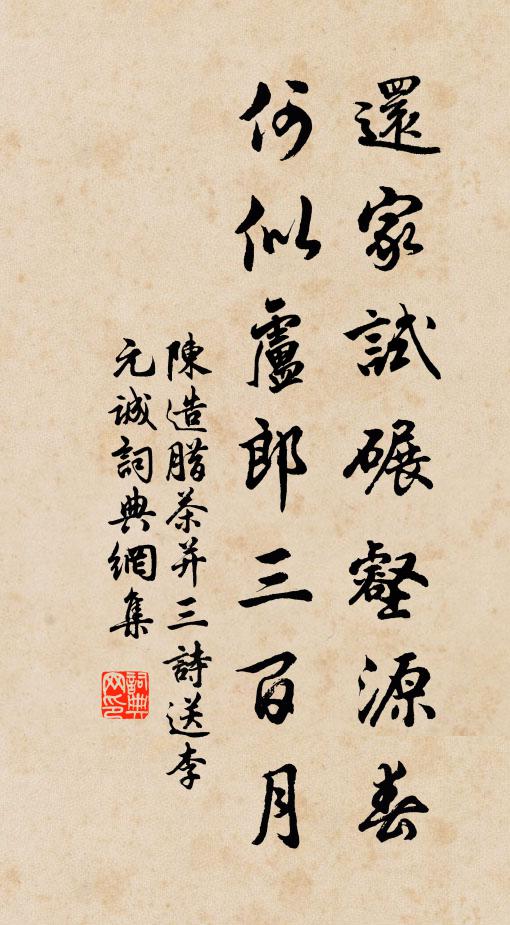 還家試碾壑源春
何似盧郎三百月
陳造腊茶并三詩送李
元誠詞典網集
詞典
网印